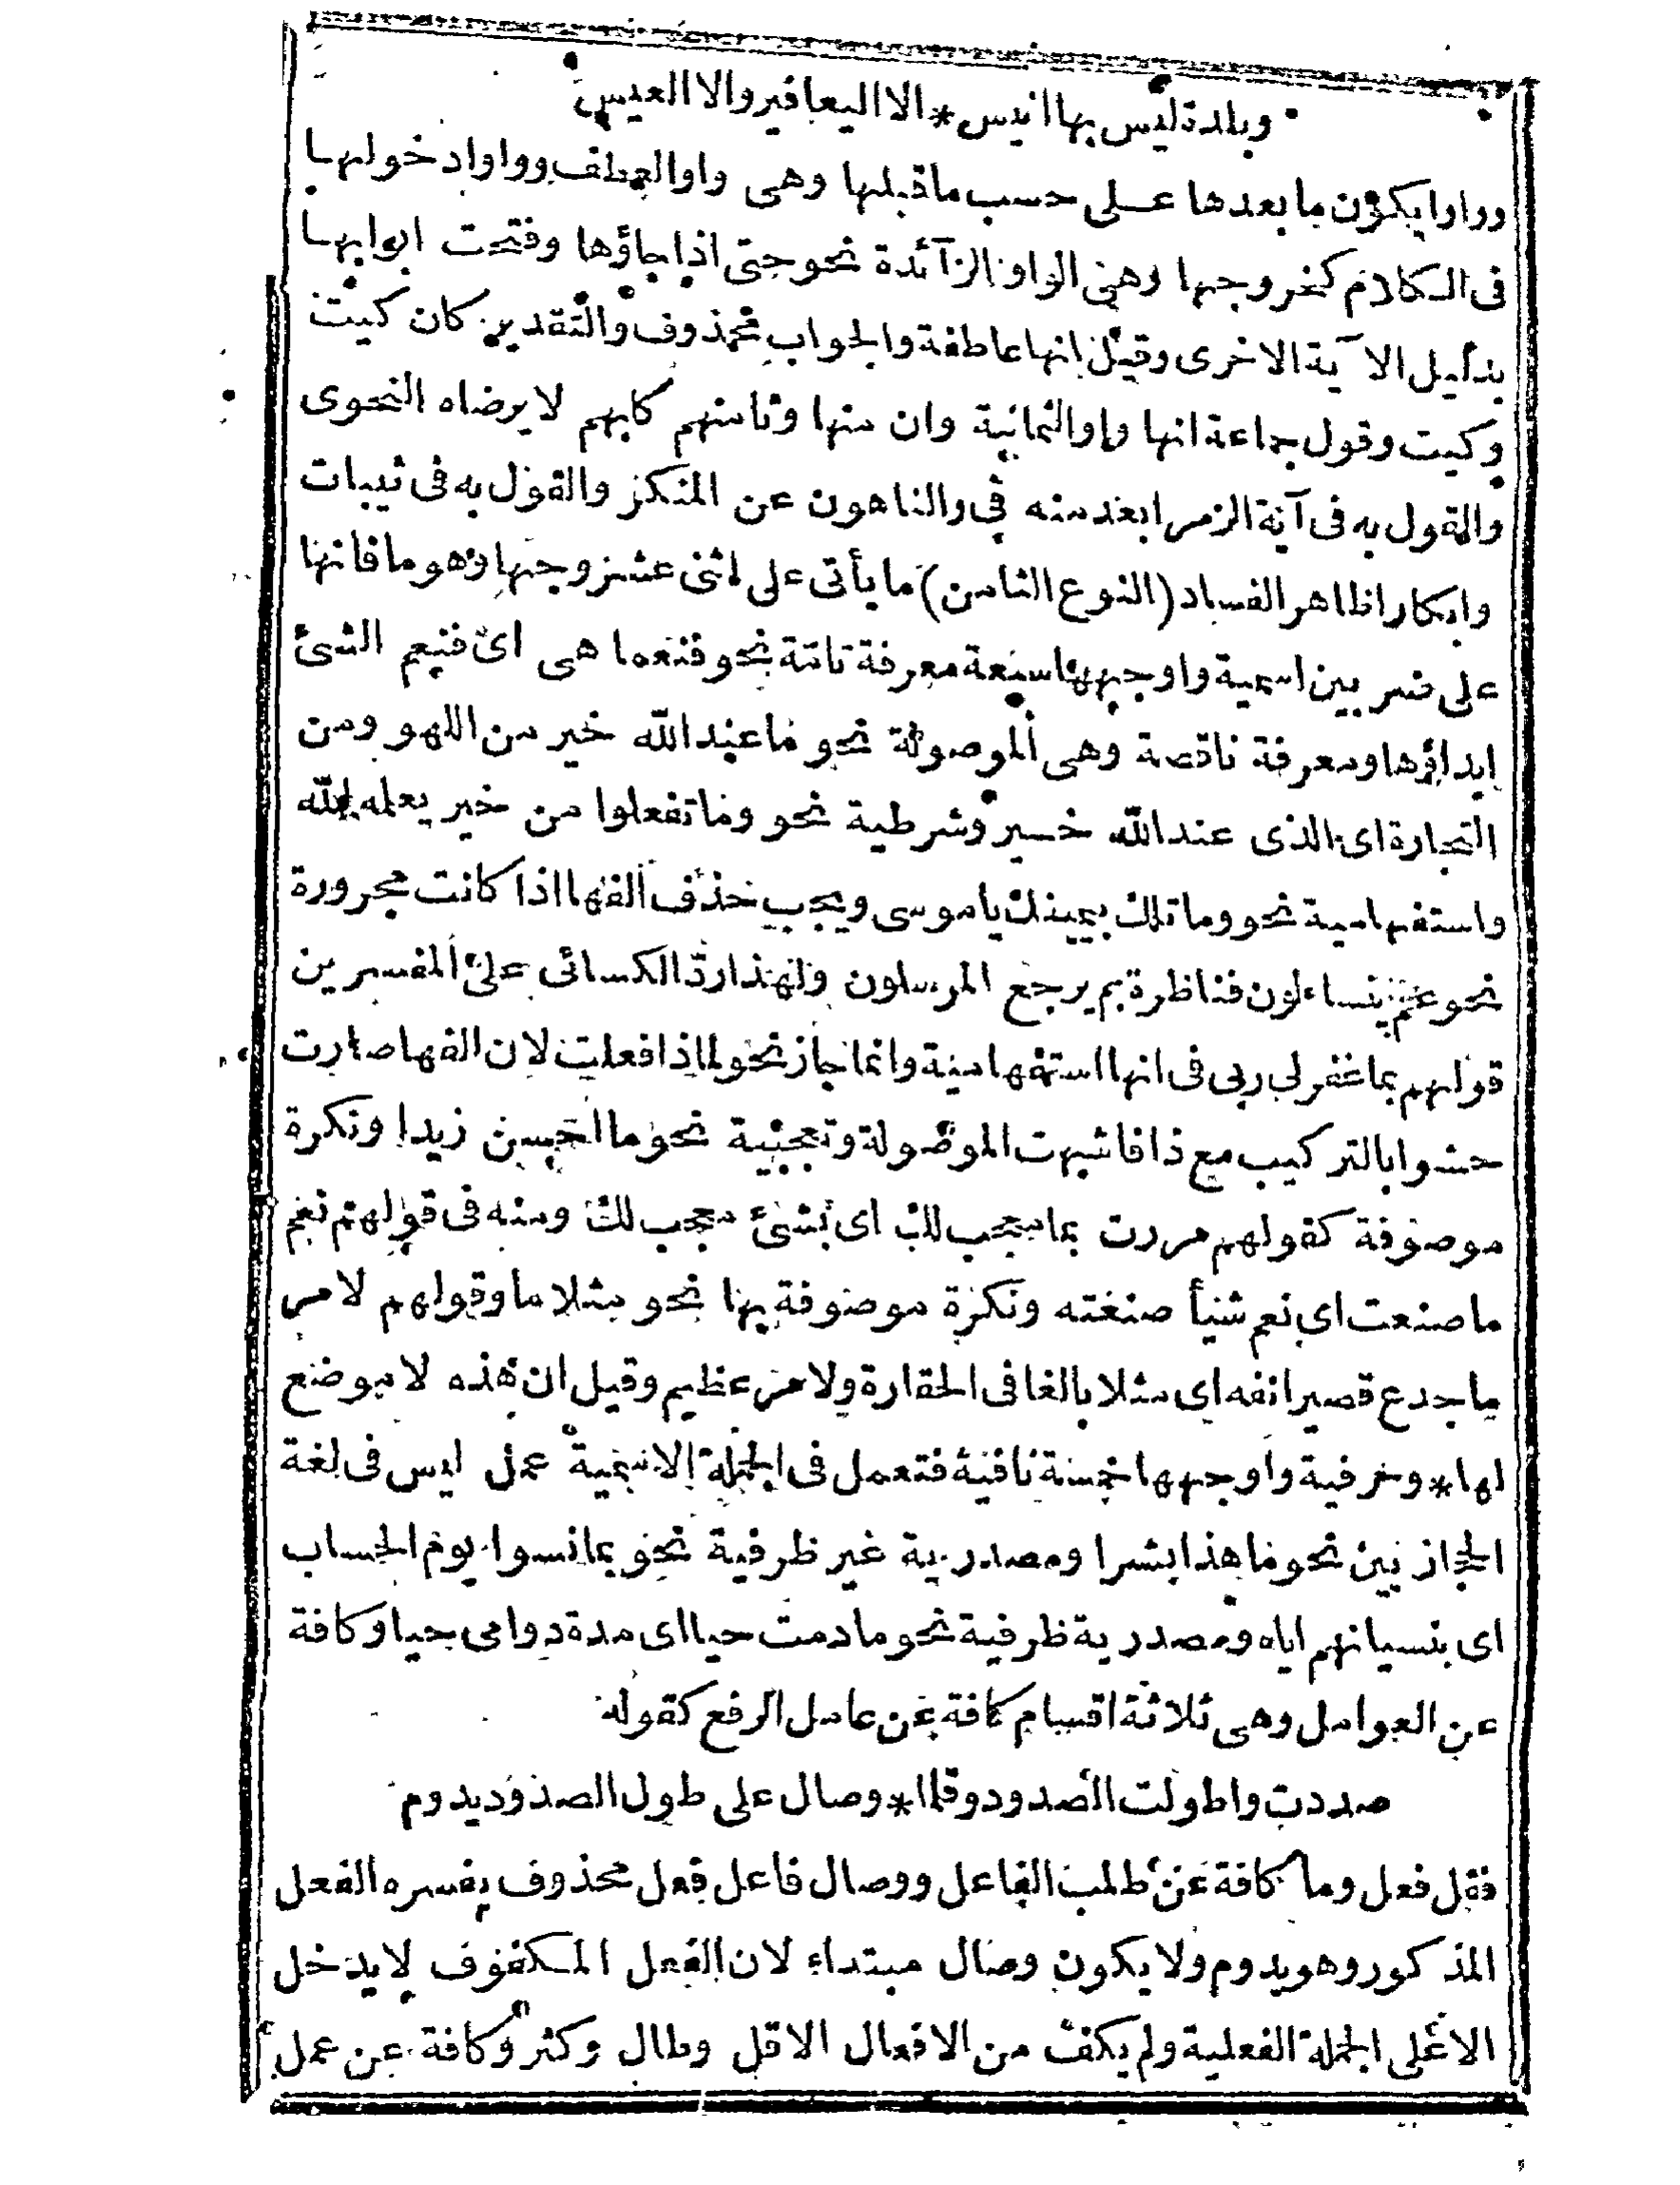 وبلدة ليس بها انيس * الا اليعافير والا العيس
وواوا يكون ما بعدها عـلى حسب ما قبلها وهى واو العطف وواوا دخولها
فى الـكلام كخروجها وهى الواو الزآئدة نحو حتى اذا جاؤها وفتحت ابوابها
بدليل الآية الاخرى وقيل انها عاطفة والجواب محذوف والتقدير كان كيت
وكيت وقول جماعة انها واو الثمانية وان منها وثامنهم كلبهم لا يرضاه النحوى
والقول به فى آية الزمر ابعد منه فى والناهون عن المنكر والقول به فى ثيبات
وابكارا ظاهر الفساد (النوع الثامن) ما يأتى على اثنى عشر وجها وهو ما فانها
على ضربين اسمية واوجهها سبعة معرفة تامة نحو فنعما هى اى فنعم الشئ
ابداؤها ومعرفة ناقصة وهى الموصولة نحو ما عند الله خير من اللهو ومن
التجارة اى الذى عند الله خـير وشرطية نحو وما تفعلوا من خير يعلمه الله
واستفهامية نحو وما تلك بيمينك يا موسى ويجب حذف الفها اذا كانت مجرورة
نحو عم يتساءلون فناظرة بم يرجع المرسلون ولهذا ردّ الكسائى على المفسرين
قولهم بما غفر لى ربى فى انها استفهامية وانما جاز نحو لماذا فعلت لان الفها صارت
حشوا بالتركيب مع ذا فاشبهت الموصولة وتعجبية نحو ما احسن زيدا ونكرة
موصوفة كقولهم مررت بما معجب لك اى بشئ معجب لك ومنه فى قولهم نعم
ما صنعت اى نعم شيأ صنعته ونكرة موصوفة بها نحو مثلا ما وقولهم لامر
ما جدع قصير انفه اى مثلا بالغا فى الحقارة ولامر عظيم وقيل ان هذه لا موضع
لها * وحرفية واوجهها خمسة نافية فتعمل فى الجملة الاسمية عمل ليس فى لغة
الحجازيين نحو ما هذا بشرا ومصدرية غير ظرفية نحو بما نسوا يوم الحساب
اى بنسيانهم اياه ومصدرية ظرفية نحو ما دمت حيا اى مدة دوامى حيا وكافة
عن العوامل وهى ثلاثة اقسام كافة عن عامل الرفع كقوله
صددت واطولت الصدود وقلما * وصال على طول الصدود يدوم
فقل فعل وما كافة عن طلب الفاعل ووصال فاعل فعل محذوف يفسره الفعل
المذكور وهو يدوم ولا يكون وصال مبتداء لان الفعل المـكفوف لا يدخل
الا على الجملة الفعلية ولم يكف من الافعال الا قل وطال وكثر وكافة عن عمل